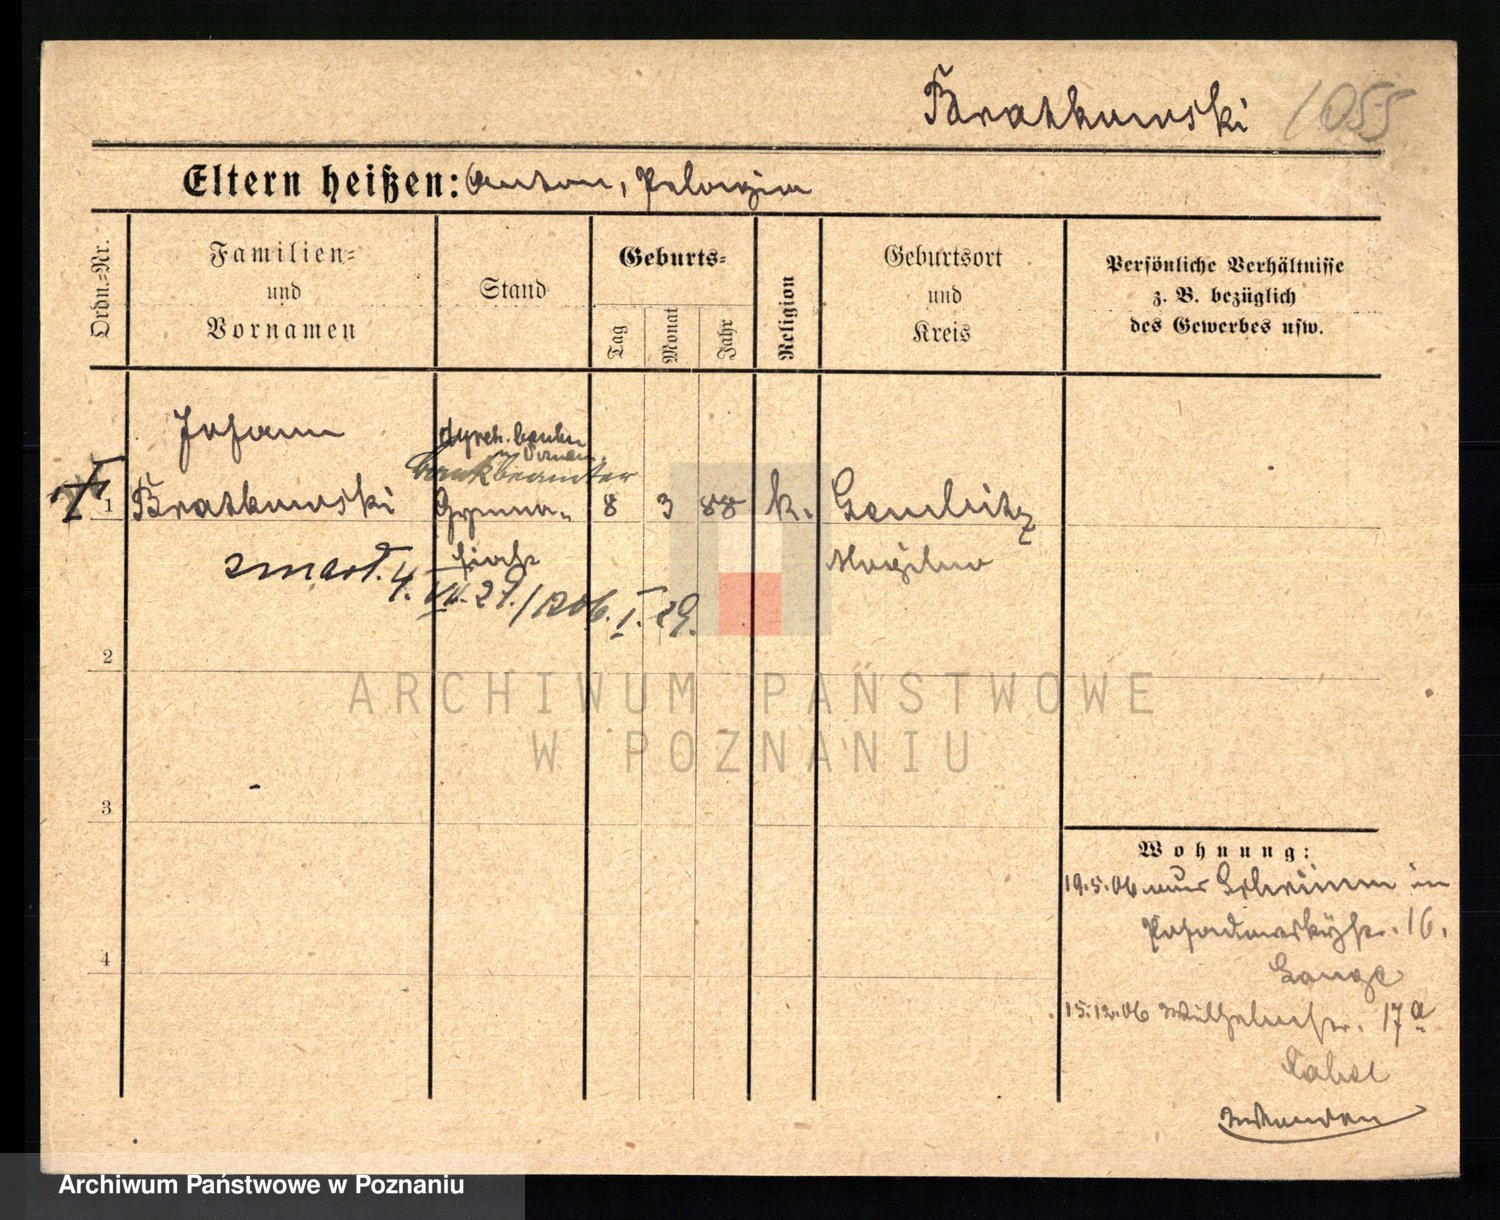 Bratkowski 1055
Eltern heißen: Anton, Pelagia
Ordn.-Nr.
Familien-
und
Vornamen
Stand
Geburts-
Tag
Monat
Jahr
Religion
Geburtsort
und
Kreis
Persönliche Verhältnisse
z. B. bezüglich
des Gewerbes usw.
Johann
dyrek. banku
Bankbeamter
1 Bratkowski Gymna- 8 3 88 k. Gembitz
siast Mogilno
zmarł. 4. VII. 29. I. 29.
2
3
4
ARCHIWUM PAŃSTWOWE
W POZNANIU
Wohnung:
19.5.06 Schrimm in
16.
Lange
15.12.06 Wilhelmstr. 17a
Archiwum Państwowe w Poznaniu